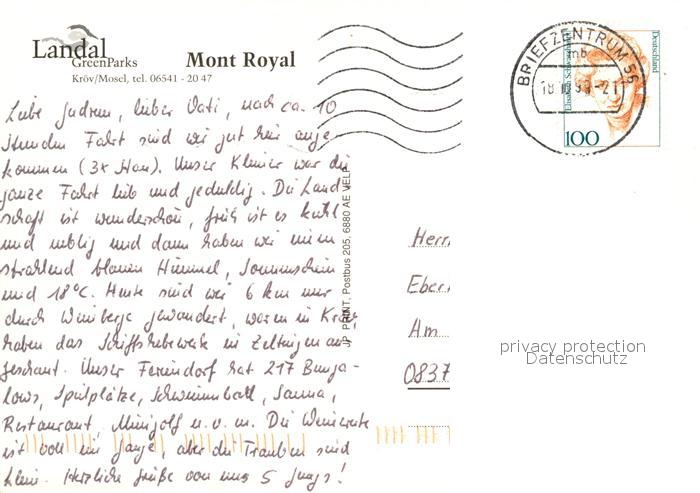 Landal
GreenParks
Mont Royal
Kröv/Mosel, tel. 06541 - 20 47
Liebe Gudrun, lieber Vati, nach ca. 10
Stunden Fahrt sind wir gut hier ange-
kommen (3x Stau). Unser Kleiner war die
ganze Fahrt lieb und geduldig. Die Land-
schaft ist wunderschön, früh ist es kühl
und neblig und dann haben wir einen
strahlend blauen Himmel, Sonnenschein
und 18°C. Heute sind wir 6 km nur
durch Weinberge gewandert, waren in Kröv,
haben das Schiffshebewerk in Zeltingen an-
geschaut. Unser Feriendorf hat 217 Bunga-
lows, Spielplätze, Schwimmbad, Sauna,
Restaurant, Minigolf u.v.m. Die Weinernte
ist voll im Gange, aber die Trauben sind
klein. Herzliche Grüße von uns 5 Jungs!
JP PRINT, Postbus 205, 6880 AE VELP
BRIEFZENTRUM 56
mb
-21
Deutschland
100
Herr
Eber
Am
0837
privacy protection
Datenschutz